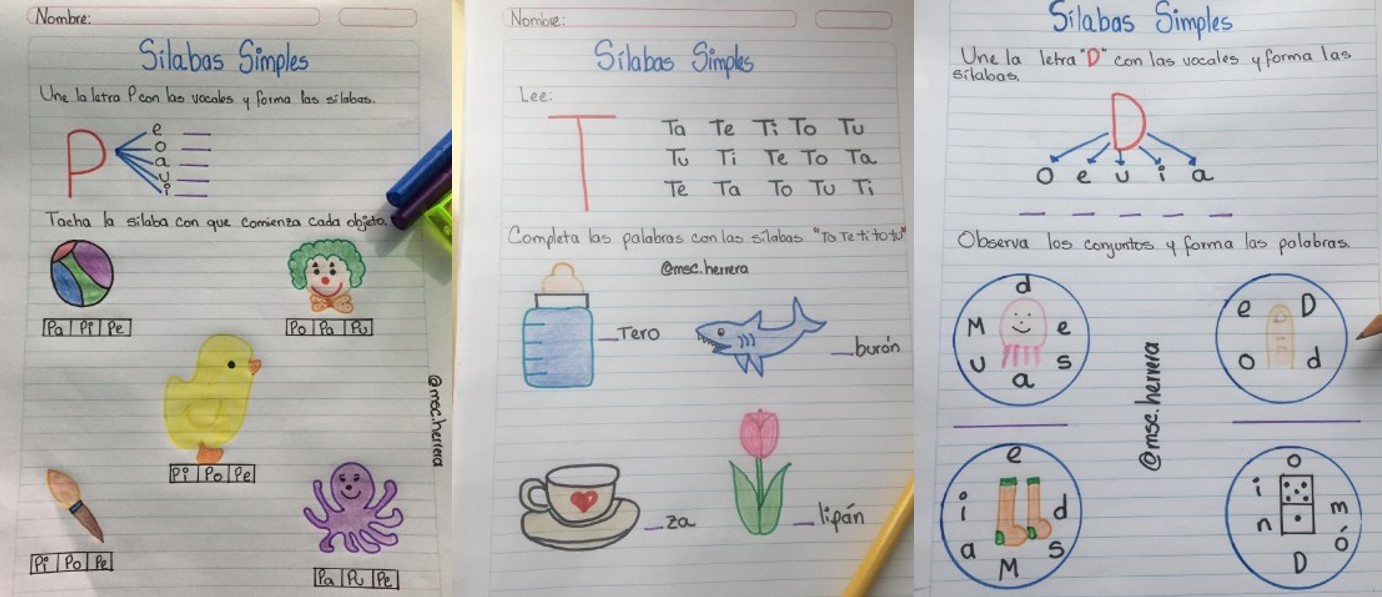 Nombre:
Sílabas Simples
Une la letra P con las vocales y forma las sílabas.
P
e
o
a
u
i
Tacha la sílaba con que comienza cada objeto.
Pa Pi Pe
Po Pa Pu
Pi Po Pe
@msc.herrera
Pi Po Pe
Pa Pu Pe
Nombre:
Sílabas Simples
Lee:
T
Ta Te Ti To Tu
Tu Ti Te To Ta
Te Ta To Tu Ti
Completa las palabras con las sílabas "Ta Te ti to tu"
@msc.herrera
_Tero
_burón
_za
_lipán
Sílabas Simples
Une la letra "D" con las vocales y forma las
sílabas.
D
o e u i a
Observa los conjuntos y forma las palabras.
d
M e
u s
a
e D
o d
@msc.herrera
e
i d
a s
M
o
i m
n ó
D